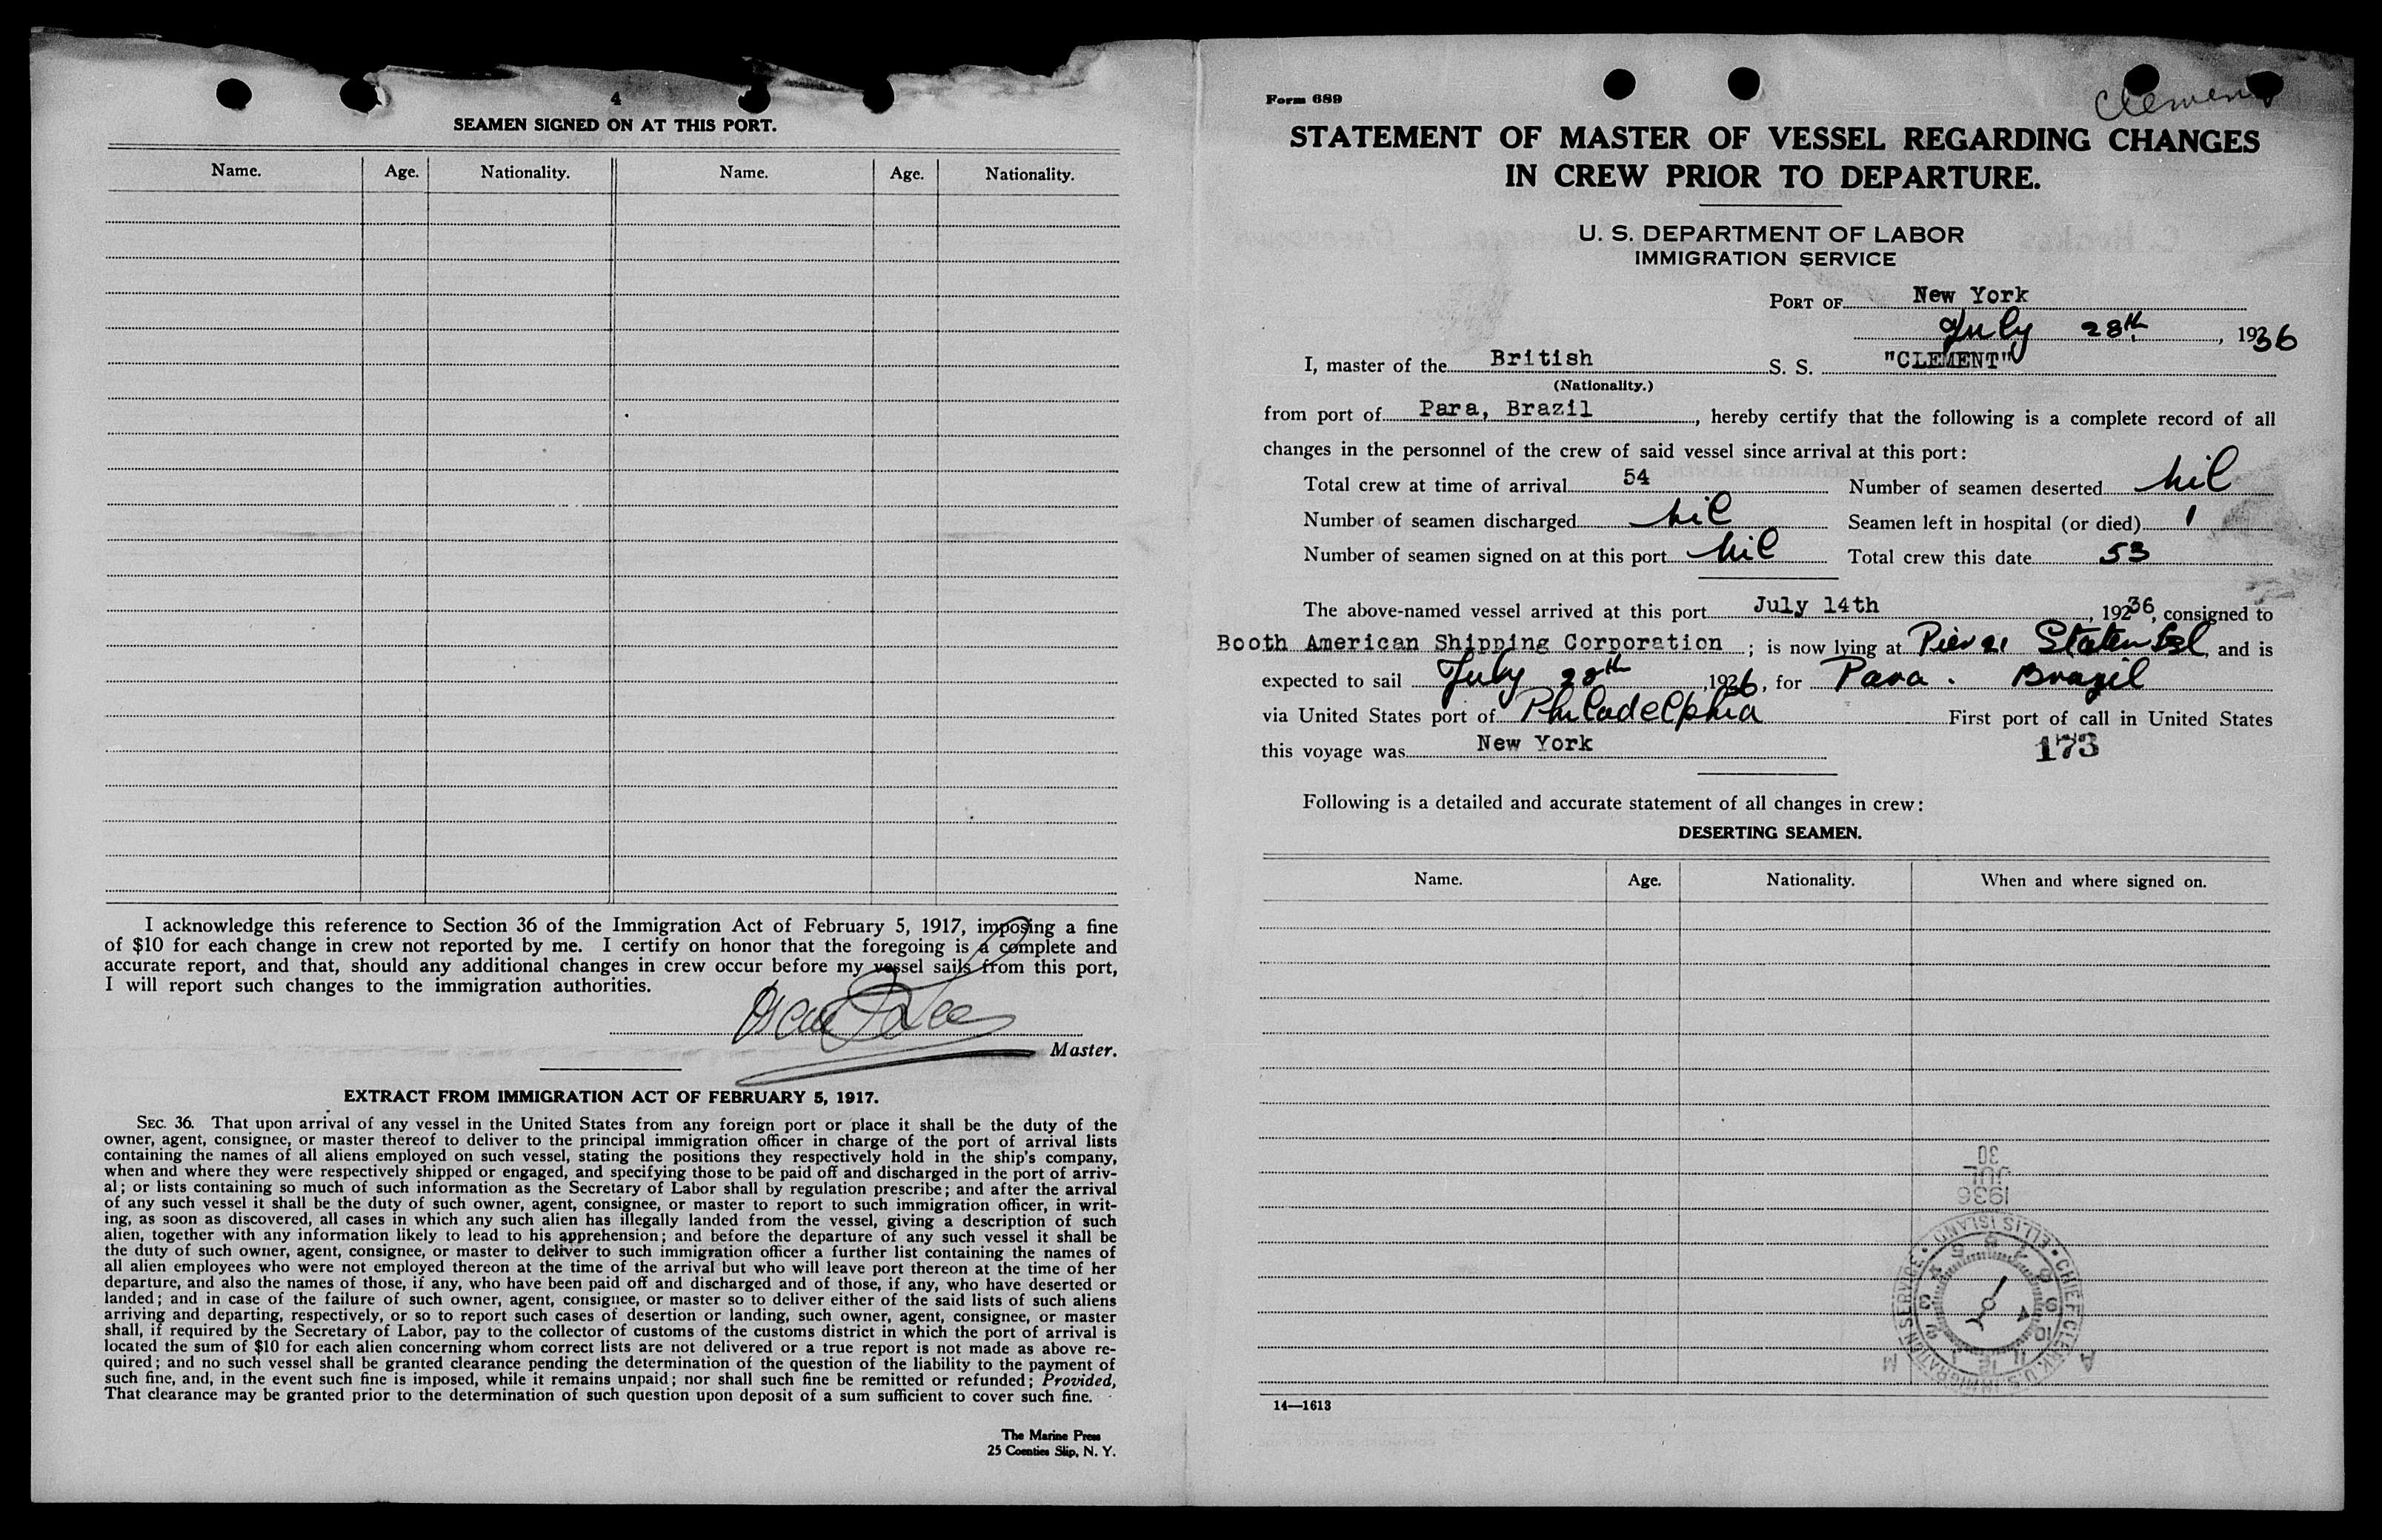 4
SEAMEN SIGNED ON AT THIS PORT.
Name. Age. Nationality. Name. Age. Nationality.
I acknowledge this reference to Section 36 of the Immigration Act of February 5, 1917, imposing a fine
of $10 for each change in crew not reported by me. I certify on honor that the foregoing is a complete and
accurate report, and that, should any additional changes in crew occur before my vessel sails from this port,
I will report such changes to the immigration authorities.
Master.
EXTRACT FROM IMMIGRATION ACT OF FEBRUARY 5, 1917.
SEC. 36. That upon arrival of any vessel in the United States from any foreign port or place it shall be the duty of the
owner, agent, consignee, or master thereof to deliver to the principal immigration officer in charge of the port of arrival lists
containing the names of all aliens employed on such vessel, stating the positions they respectively hold in the ship's company,
when and where they were respectively shipped or engaged, and specifying those to be paid off and discharged in the port of arriv-
al; or lists containing so much of such information as the Secretary of Labor shall by regulation prescribe; and after the arrival
of any such vessel it shall be the duty of such owner, agent, consignee, or master to report to such immigration officer, in writ-
ing, as soon as discovered, all cases in which any such alien has illegally landed from the vessel, giving a description of such
alien, together with any information likely to lead to his apprehension; and before the departure of any such vessel it shall be
the duty of such owner, agent, consignee, or master to deliver to such immigration officer a further list containing the names of
all alien employees who were not employed thereon at the time of the arrival but who will leave port thereon at the time of her
departure, and also the names of those, if any, who have been paid off and discharged and of those, if any, who have deserted or
landed; and in case of the failure of such owner, agent, consignee, or master so to deliver either of the said lists of such aliens
arriving and departing, respectively, or so to report such cases of desertion or landing, such owner, agent, consignee, or master
shall, if required by the Secretary of Labor, pay to the collector of customs of the customs district in which the port of arrival is
located the sum of $10 for each alien concerning whom correct lists are not delivered or a true report is not made as above re-
quired; and no such vessel shall be granted clearance pending the determination of the question of the liability to the payment of
such fine, and, in the event such fine is imposed, while it remains unpaid; nor shall such fine be remitted or refunded; Provided,
That clearance may be granted prior to the determination of such question upon deposit of a sum sufficient to cover such fine.
The Marine Press
25 Coenties Slip, N. Y.
Form 689
Clement
STATEMENT OF MASTER OF VESSEL REGARDING CHANGES
IN CREW PRIOR TO DEPARTURE.
U. S. DEPARTMENT OF LABOR
IMMIGRATION SERVICE
PORT OF New York
July 28th, 1936
I, master of the British S. S. "CLEMENT"
(Nationality.)
from port of Para, Brazil, hereby certify that the following is a complete record of all
changes in the personnel of the crew of said vessel since arrival at this port:
Total crew at time of arrival 54 Number of seamen deserted nil
Number of seamen discharged nil Seamen left in hospital (or died) 1
Number of seamen signed on at this port nil Total crew this date 53
The above-named vessel arrived at this port July 14th, 19236, consigned to
Booth American Shipping Corporation; is now lying at Pier 21 Staten Isl, and is
expected to sail July 28th, 1936, for Para. Brazil
via United States port of Philadelphia First port of call in United States
this voyage was New York 173
Following is a detailed and accurate statement of all changes in crew:
DESERTING SEAMEN.
Name. Age. Nationality. When and where signed on.
30
JUL
1936
CHIEF CLERK, U.S. IMMIGRATION SERVICE • ELLIS ISLAND •
A M
14—1613